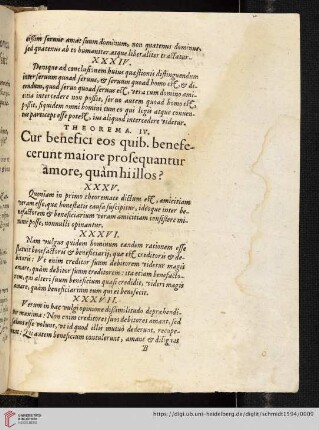 dissim servum amat suum dominum, non quatenus dominus,
sed quatenus ab eo humaniter atque liberaliter tractatur.
XXXIV.
Denique ad conclusionem huius quæstionis distinguendum
inter servum quoad servus, & servum quoad homo est, &
dendum, quod servo quoad servus est, vera cum domino ami-
citia intercedere non possit, servo autem quoad homo est,
possit, siquidem omni homini cum eo qui legis atque conven-
tus particeps esse potest, ius aliquod intercedere videtur.
THEOREMA. IV.
Cur benefici eos quib. benefe-
cerunt maiore prosequantur
amore, quàm hi illos?
XXXV.
Quoniam in primo theoremate dictum est, amicitiam
veram esse, quæ honestatis causa suscipitur, ideoque inter be-
nefactorem & beneficiarium veram amicitiam consistere mi-
nime posse, nonnulli opinantur.
XXXVI.
Nam vulgus quidem hominum eandem rationem esse
statuit benefactoris & beneficiarij, quæ est creditoris & de-
bitoris: Ut enim creditor suum debitorem videtur magis
amare, quàm debitor suum creditorem: ita etiam benefacto-
rem, qui alteri beneficium quasi credidit, videri magis
amare, quàm beneficiarium eum qui ei benefecit.
XXXVII.
Verum in hac vulgi opinione dissimilitudo deprehendi-
maxima: Non enim creditores sui debitores amant, sed
esse volunt, ut id quod illis mutuò dederunt, recupe-
Qui autem beneficium contulerunt, amant & diligunt
B
https://digi.ub.uni-heidelberg.de/diglit/schmidt1594/0009
UNIVERSITÄTS-
BIBLIOTHEK
HEIDELBERG